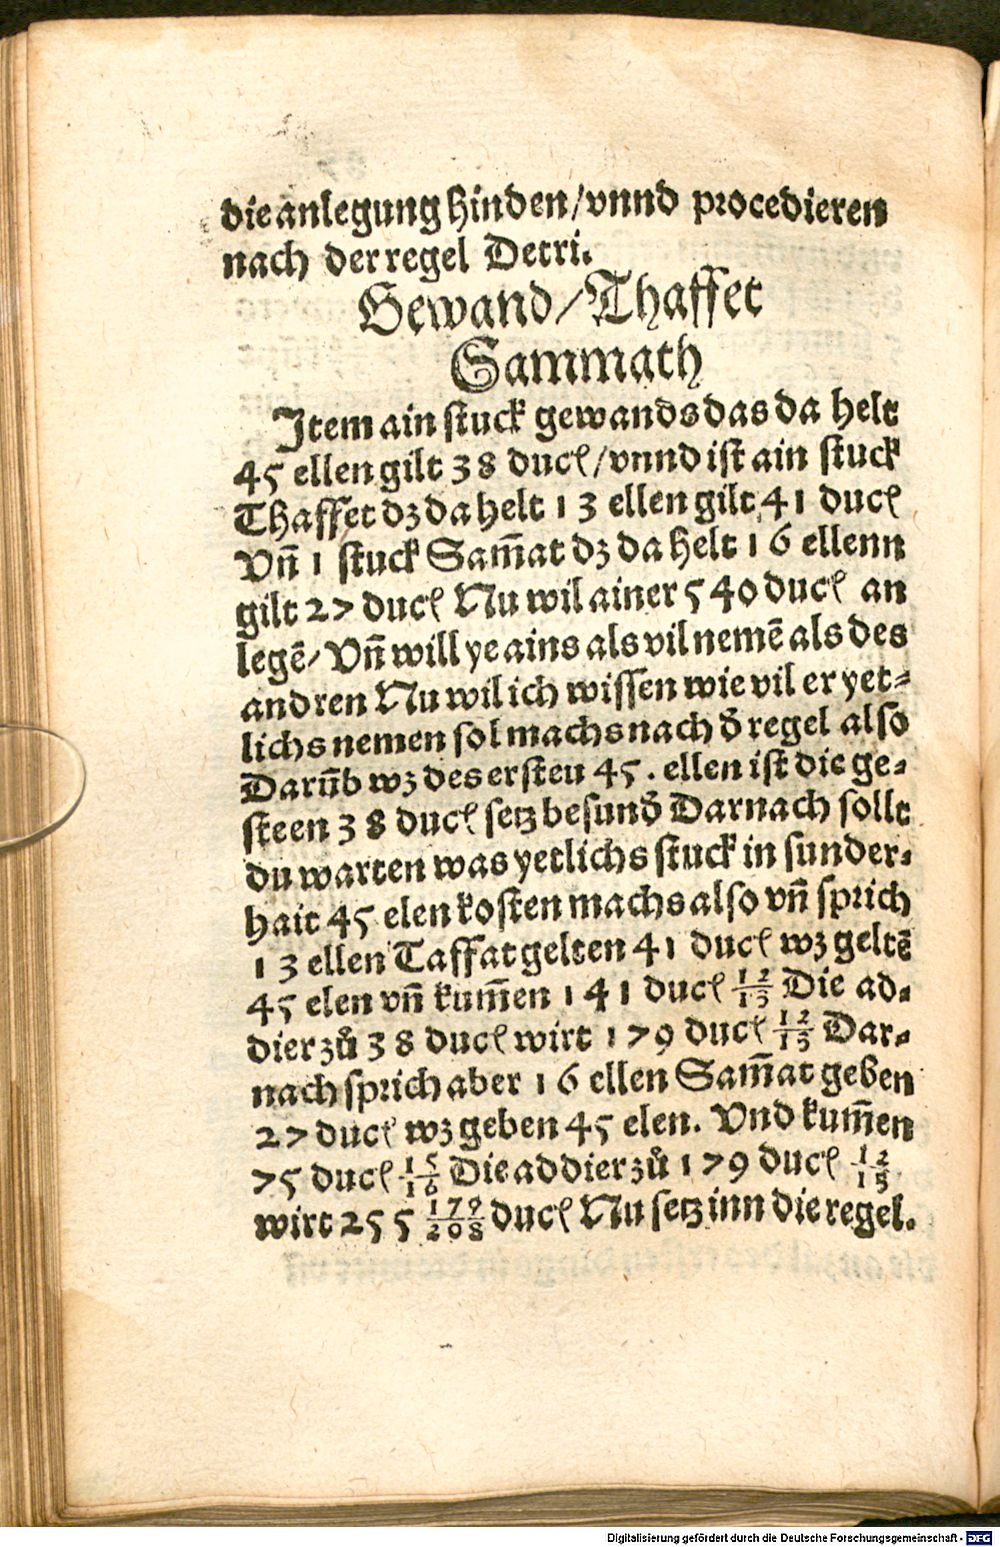 die anlegung hinden/vnnd procedieren
nach der regel Detri.
Gewand/Thaffet
Sammath
Item ain stuck gewands das da helt
45 ellen gilt 38 ducꝭ/vnnd ist ain stuck
Thaffet dz da helt 13 ellen gilt 41 ducꝭ
Vn̄ 1 stuck Sam̄at dz da helt 16 ellenn
gilt 27 ducꝭ Nu wil ainer 540 ducꝭ an
legē/Vn̄ will ye ains als vil nemē als des
andren Nu wil ich wissen wie vil er yet⸗
lichs nemen sol machs nach d̄ regel also
Darūb wz des ersten 45. ellen ist die ge⸗
steen 38 ducꝭ setz besund̄ Darnach sollt
du warten was yetlichs stuck in sunder⸗
hait 45 elen kosten machs also vn̄ sprich
13 ellen Taffat gelten 41 ducꝭ wz geltē
45 elen vn̄ kum̄en 141 ducꝭ 12/13 Die ad⸗
dier zů 38 ducꝭ wirt 179 ducꝭ 12/13 Dar⸗
nach sprich aber 16 ellen Sam̄at geben
27 ducꝭ wz geben 45 elen. Vnd kum̄en
75 ducꝭ 15/16 Die addier zů 179 ducꝭ 12/13
wirt 255 179/208 ducꝭ Nu setz inn die regel.
Digitalisierung gefördert durch die Deutsche Forschungsgemeinschaft - DFG